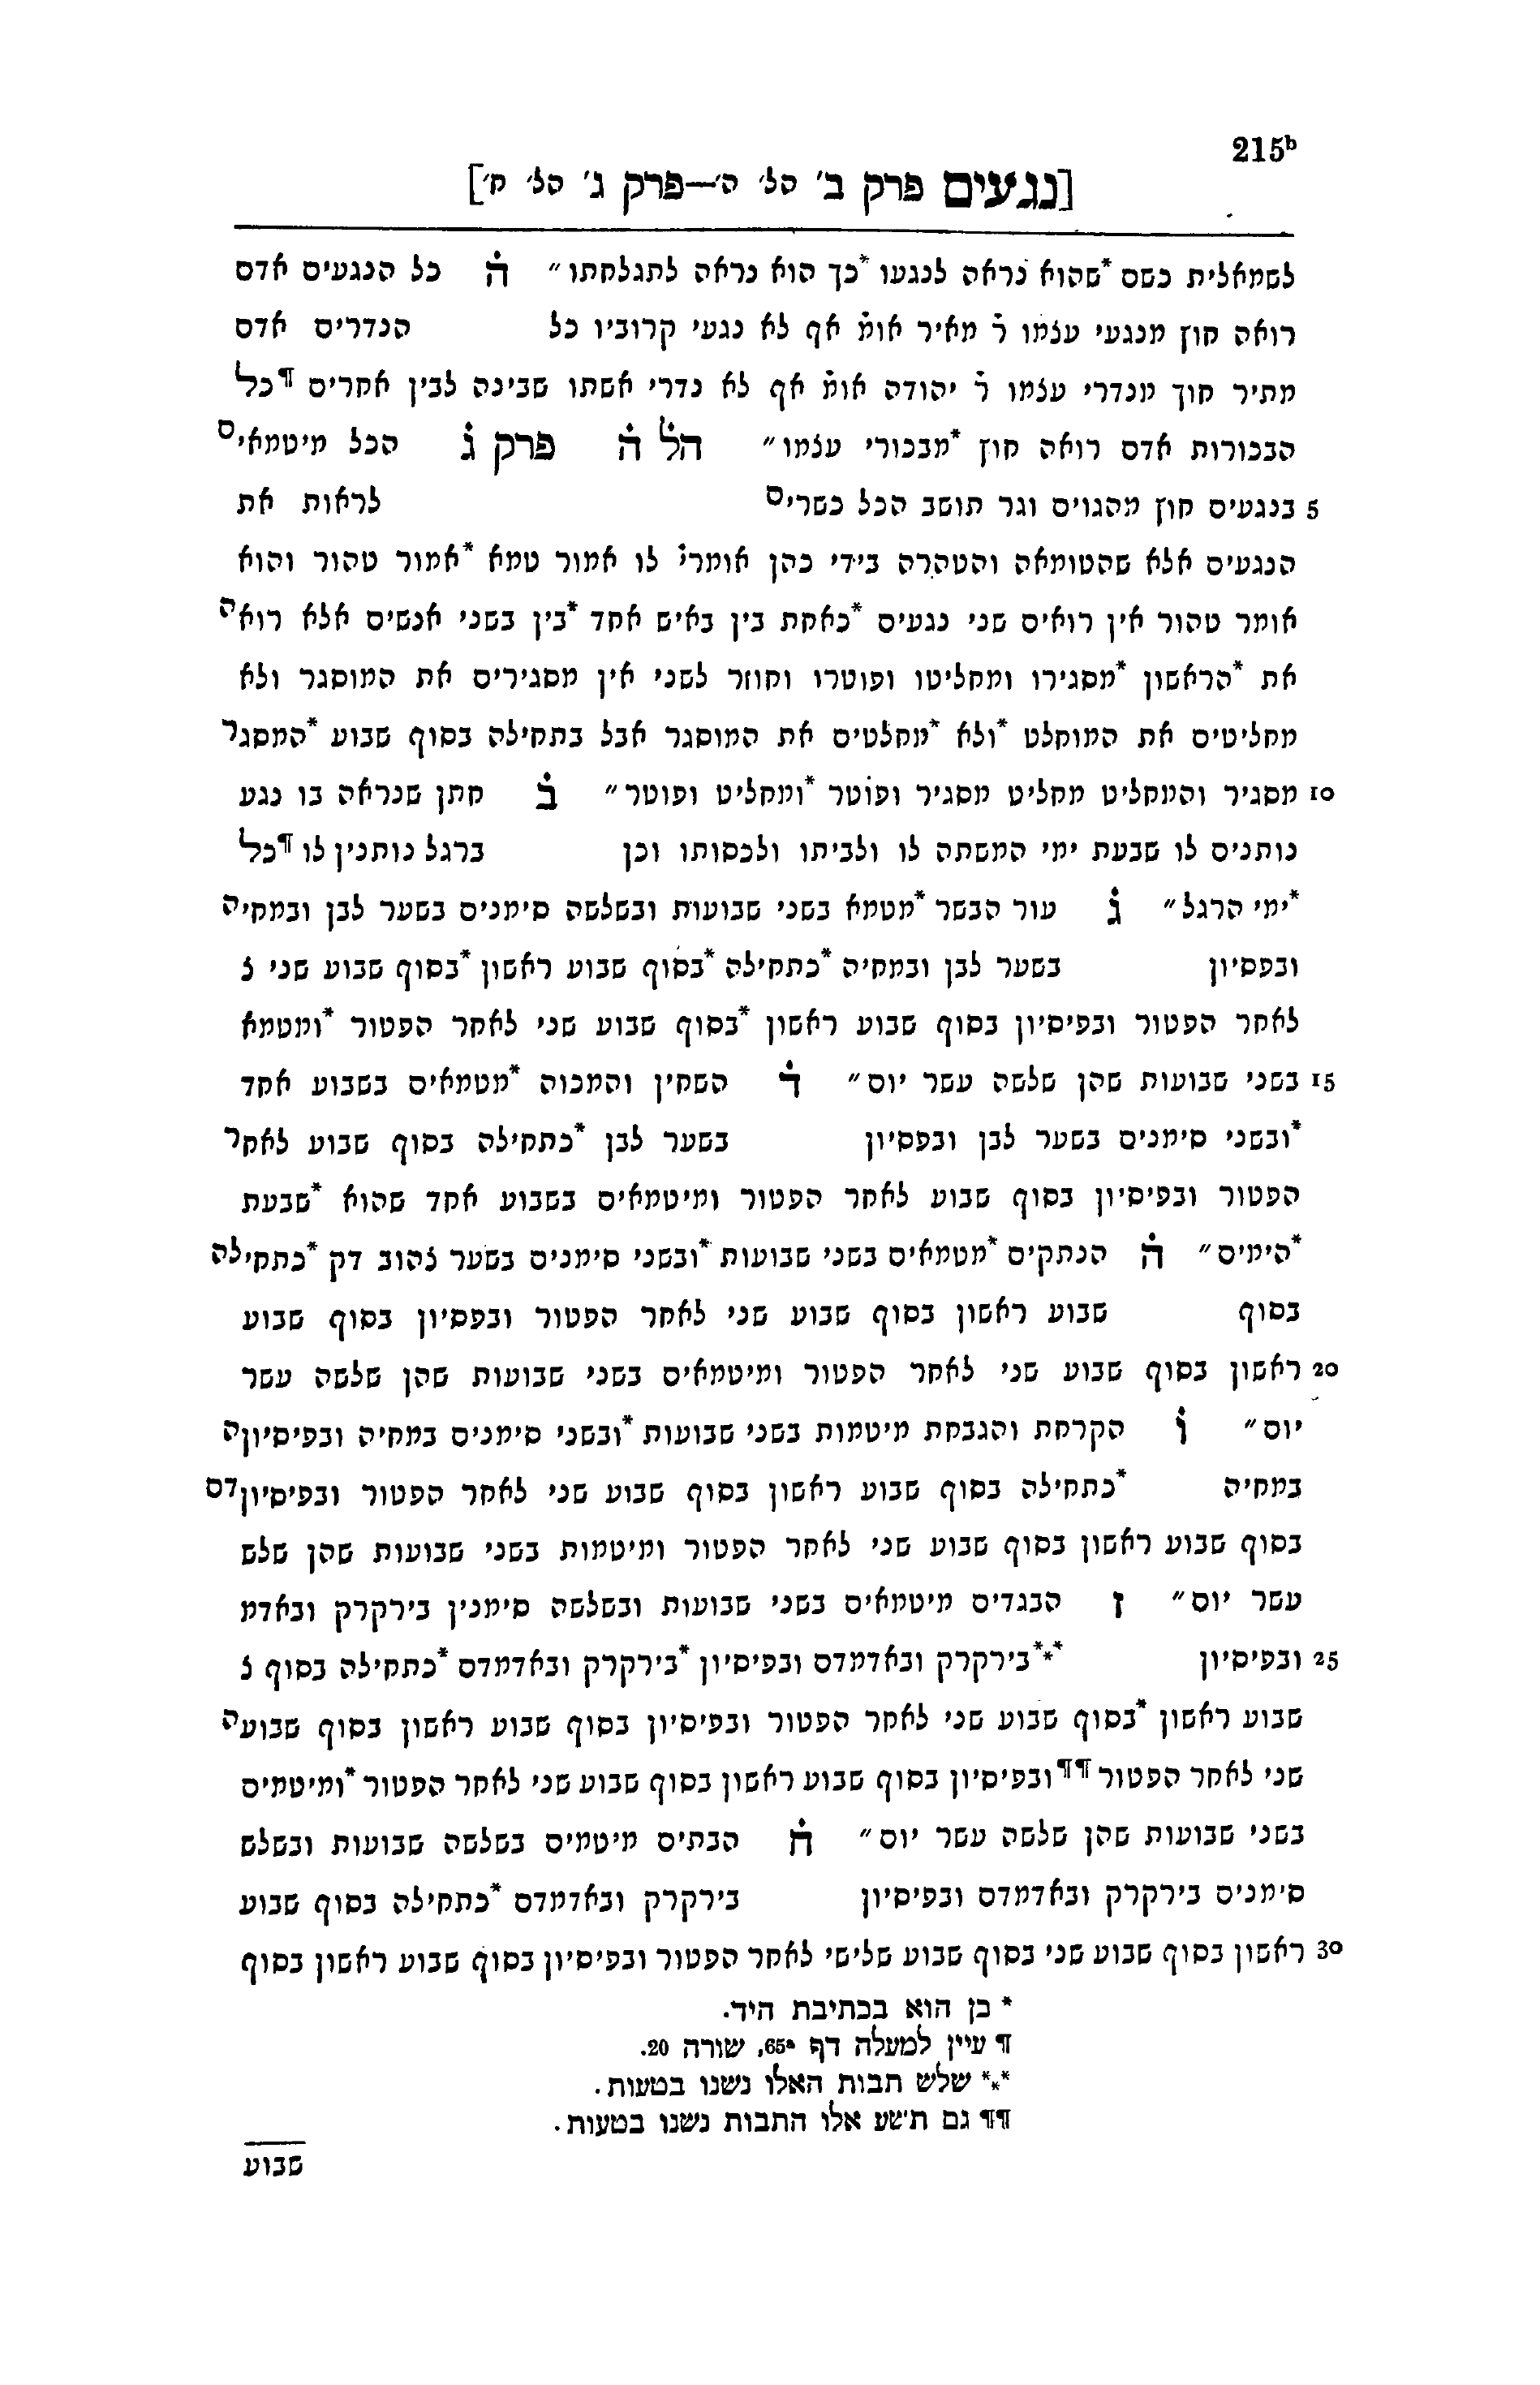 215ᵇ
[נגעים פרק ב׳ הל׳ ה׳—פרק ג׳ הל׳ ח׳]
לשמאלית כשם *שהוא נראה לנגעו *כך הוא נראה לתגלחתו״ הׄ כל הנגעים אדם
רואה חוץ מנגעי עצמו רׄ מאיר אומׄ אף לא נגעי קרוביו כל הנדרים אדם
מתיר חוץ מנדרי עצמו רׄ יהודה אומׄ אף לא נדרי אשתו שבינה לבין אחרים ¶כל
הבכורות אדם רואה חוץ *מבכורי עצמו״ הלׄ הׄ פרק גׄ הכל מיטמאים
5 בנגעים חוץ מהגוים וגר תושב הכל כשרים לראות את
הנגעים אלא שהטומאה והטהרה בידי כהן אומריׄ לו אמור טמא *אמור טהור והוא
אומר טהור אין רואים שני נגעים *כאחת בין באיש אחד *בין בשני אנשים אלא רואה
את *הראשון *מסגירו ומחליטו ופוטרו וחוזר לשני אין מסגירים את המוסגר ולא
מחליטים את המוחלט *ולא *מחלטים את המוסגר אבל בתחילה בסוף שבוע *המסגר
10 מסגיר והמחליט מחליט מסגיר ופוטר *ומחליט ופוטר״ בׄ חתן שנראה בו נגע
נותנים לו שבעת ימי המשתה לו ולביתו ולכסותו וכן ברגל נותנין לו ¶כל
*ימי הרגל״ גׄ עור הבשר *מטמא בשני שבועות ובשלשה סימנים בשער לבן ובמחיה
ובפסיון בשער לבן ובמחיה *כתחילה *בסוף שבוע ראשון *בסוף שבוע שני ל
לאחר הפטור ובפיסיון בסוף שבוע ראשון *בסוף שבוע שני לאחר הפטור *ומטמא
15 בשני שבועות שהן שלשה עשר יום״ דׄ השחין והמכוה *מטמאים בשבוע אחד
*ובשני סימנים בשער לבן ובפסיון בשער לבן *כתחילה בסוף שבוע לאחר
הפטור ובפיסיון בסוף שבוע לאחר הפטור ומיטמאים בשבוע אחד שהוא *שבעת
*הימים״ הׄ הנתקים *מטמאים בשני שבועות *ובשני סימנים בשער צהוב דק *כתחילה
בסוף שבוע ראשון בסוף שבוע שני לאחר הפטור ובפסיון בסוף שבוע
20 ראשון בסוף שבוע שני לאחר הפטור ומיטמאים בשני שבועות שהן שלשה עשר
יום״ וׄ הקרחת והגבחת מיטמות בשני שבועות *ובשני סימנים במחיה ובפיסיוןה
במחיה *כתחילה בסוף שבוע ראשון בסוף שבוע שני לאחר הפטור ובפיסיוןדם
בסוף שבוע ראשון בסוף שבוע שני לאחר הפטור ומיטמות בשני שבועות שהן שלש
עשר יום״ ז הבגדים מיטמאים בשני שבועות ובשלשה סימנין בירקרק ובאדמ
25 ובפיסיון **בירקרק ובאדמדם ובפיסיון *בירקרק ובאדמדם *כתחילה בסוף ל
שבוע ראשון *בסוף שבוע שני לאחר הפטור ובפיסיון בסוף שבוע ראשון בסוף שבועה
שני לאחר הפטור ¶¶ובפיסיון בסוף שבוע ראשון בסוף שבוע שני לאחר הפטור *ומיטמים
בשני שבועות שהן שלשה עשר יום״ חׄ הבתים מיטמים בשלשה שבועות ובשלש
סימנים בירקרק ובאדמדם ובפיסיון בירקרק ובאדמדם *כתחילה בסוף שבוע
30 ראשון בסוף שבוע שני בסוף שבוע שלישי לאחר הפטור ובפיסיון בסוף שבוע ראשון בסוף
* כן הוא בכתיבת היד.
¶ עיין למעלה דף 65ᵃ, שורה 20.
*** שלש תבות האלו נשנו בטעות.
¶¶ גם תשע אלו התבות נשנו בטעות.
שבוע